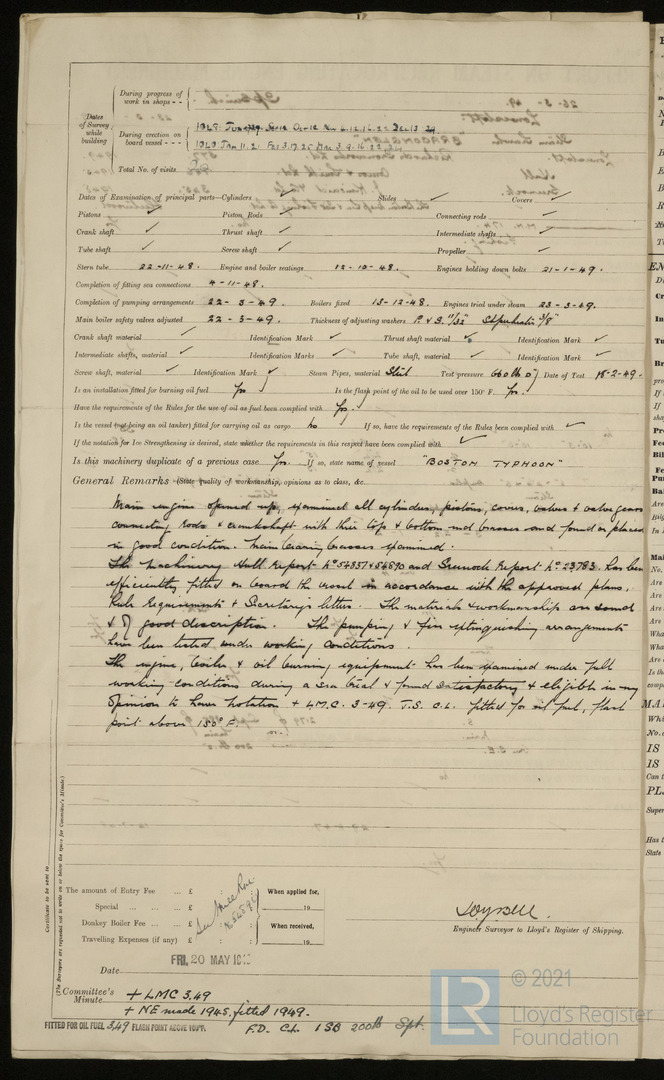 During progress of work in shops - -
Dates of Survey while building
During erection on board vessel - - -
Total No. of visits
Dates of Examination of principal parts—Cylinders ✓ Slides ✓ Covers ✓
Pistons ✓ Piston Rods ✓ Connecting rods ✓
Crank shaft ✓ Thrust shaft ✓ Intermediate shafts ✓
Tube shaft ✓ Screw shaft ✓ Propeller ✓
Stern tube 22-11-48. Engine and boiler seatings 12-10-48. Engines holding down bolts 21-1-49.
Completion of fitting sea connections 4-11-48.
Completion of pumping arrangements 22-3-49. Boilers fixed 13-12-48. Engines tried under steam 23-3-49.
Main boiler safety valves adjusted 22-3-49. Thickness of adjusting washers P & S. 11/32" Superheater 3/8"
Crank shaft material ✓ Identification Mark ✓ Thrust shaft material ✓ Identification Mark ✓
Intermediate shafts, material ✓ Identification Marks ✓ Tube shaft, material ✓ Identification Mark ✓
Screw shaft, material ✓ Identification Mark ✓ Steam Pipes, material Steel Test pressure 660 lb □" Date of Test 15-2-49.
Is an installation fitted for burning oil fuel Yes Is the flash point of the oil to be used over 150° F. Yes.
Have the requirements of the Rules for the use of oil as fuel been complied with Yes.
Is the vessel (not being an oil tanker) fitted for carrying oil as cargo No If so, have the requirements of the Rules been complied with ✓
If the notation for Ice Strengthening is desired, state whether the requirements in this respect have been complied with ✓
Is this machinery duplicate of a previous case Yes. If so, state name of vessel "BOSTON TYPHOON"
General Remarks (State quality of workmanship, opinions as to class, &c.
Main engine opened up, examined all cylinders, pistons, covers, valves & valve gears
connecting rods & crankshaft with their top & bottom end brasses and found or placed
in good condition. Main bearing brasses examined.
The Machinery Hull Report No 54857 & 54890 and Greenock Report No 23783. has been
efficiently fitted on board the vessel in accordance with the approved plans,
Rule Requirements & Secretary's letters. The materials & workmanship are sound
& of good description. The pumping & fire extinguishing arrangements
have been tested under working conditions.
The engine, boiler & oil burning equipment has been examined under full
working conditions during a sea trial & found satisfactory & eligible in my
opinion to have notation + L.M.C. 3-49. T.S. C.L. fitted for oil fuel, flash
point above 150° F.
Certificate to be sent to
(The Surveyors are requested not to write on or below the space for Committee's Minute.)
The amount of Entry Fee ... £ : : When applied for,
Special ... ... ... £ : : 19
Donkey Boiler Fee ... ... £ : : When received,
Travelling Expenses (if any) £ : : 19
See Hull Rpt
No 54890
Engineer Surveyor to Lloyd's Register of Shipping.
FRI. 20 MAY 19
Date
Committee's Minute + LMC 3,49
+ NE made 1945, fitted 1949.
FITTED FOR OIL FUEL 3,49 FLASH POINT ABOVE 150°F. F.D. CL 1 SB 200 lb Spt.
LR
© 2021
Lloyd's Register
Foundation